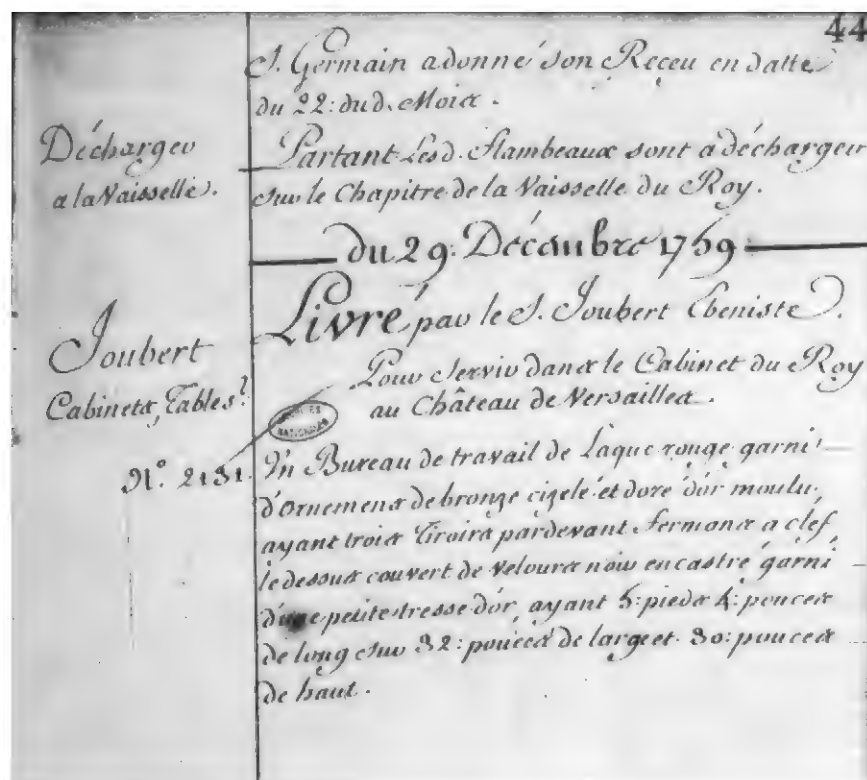 44
S. Germain a donné son Reçeu en datte
du 22: dud. Mois.
Décharger
a la Vaisselle.
Partant Lesd. Flambeaux sont a décharger
sur le Chapitre de la Vaisselle du Roy.
du 29. Décembre 1759
Livré par le S. Joubert Ebeniste.
Joubert
Cabinets, Tables &
Pour Servir dans le Cabinet du Roy
au Château de Versailles.
ARCHIVES
NATIONALES
N.º 2131.
Un Bureau de travail de Laque rouge garni
d'Ornemens de bronze cizelé et doré d'or moulu,
ayant trois Tiroirs pardevant fermans a clef,
le dessus couvert de velours noir encastré garni
d'une petite tresse d'or, ayant 5: pieds 4: pouces
de long sur 32: pouces de large et 30: pouces
de haut.